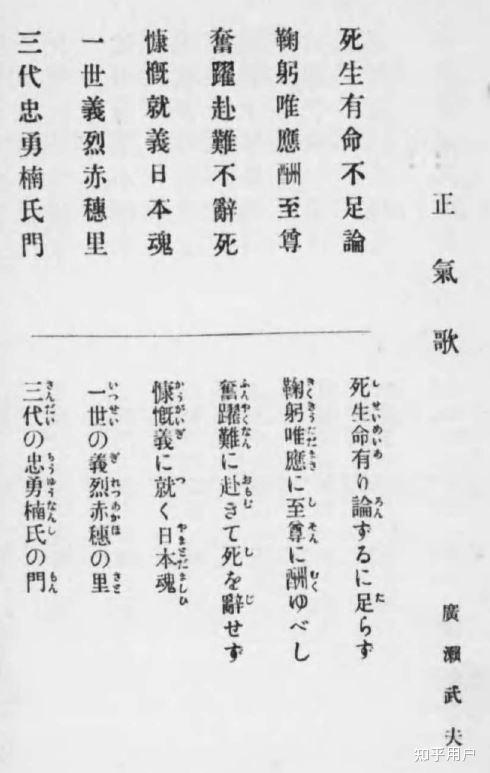 正氣歌
廣瀨武夫
死生有命不足論
鞠躬唯應酬至尊
奮躍赴難不辭死
慷慨就義日本魂
一世義烈赤穗里
三代忠勇楠氏門
死生命有り論ずるに足らず
鞠躬唯應に至尊に酬ゆべし
奮躍難に赴きて死を辭せず
慷慨義に就く日本魂
一世の義烈赤穗の里
三代の忠勇楠氏の門
知乎用户